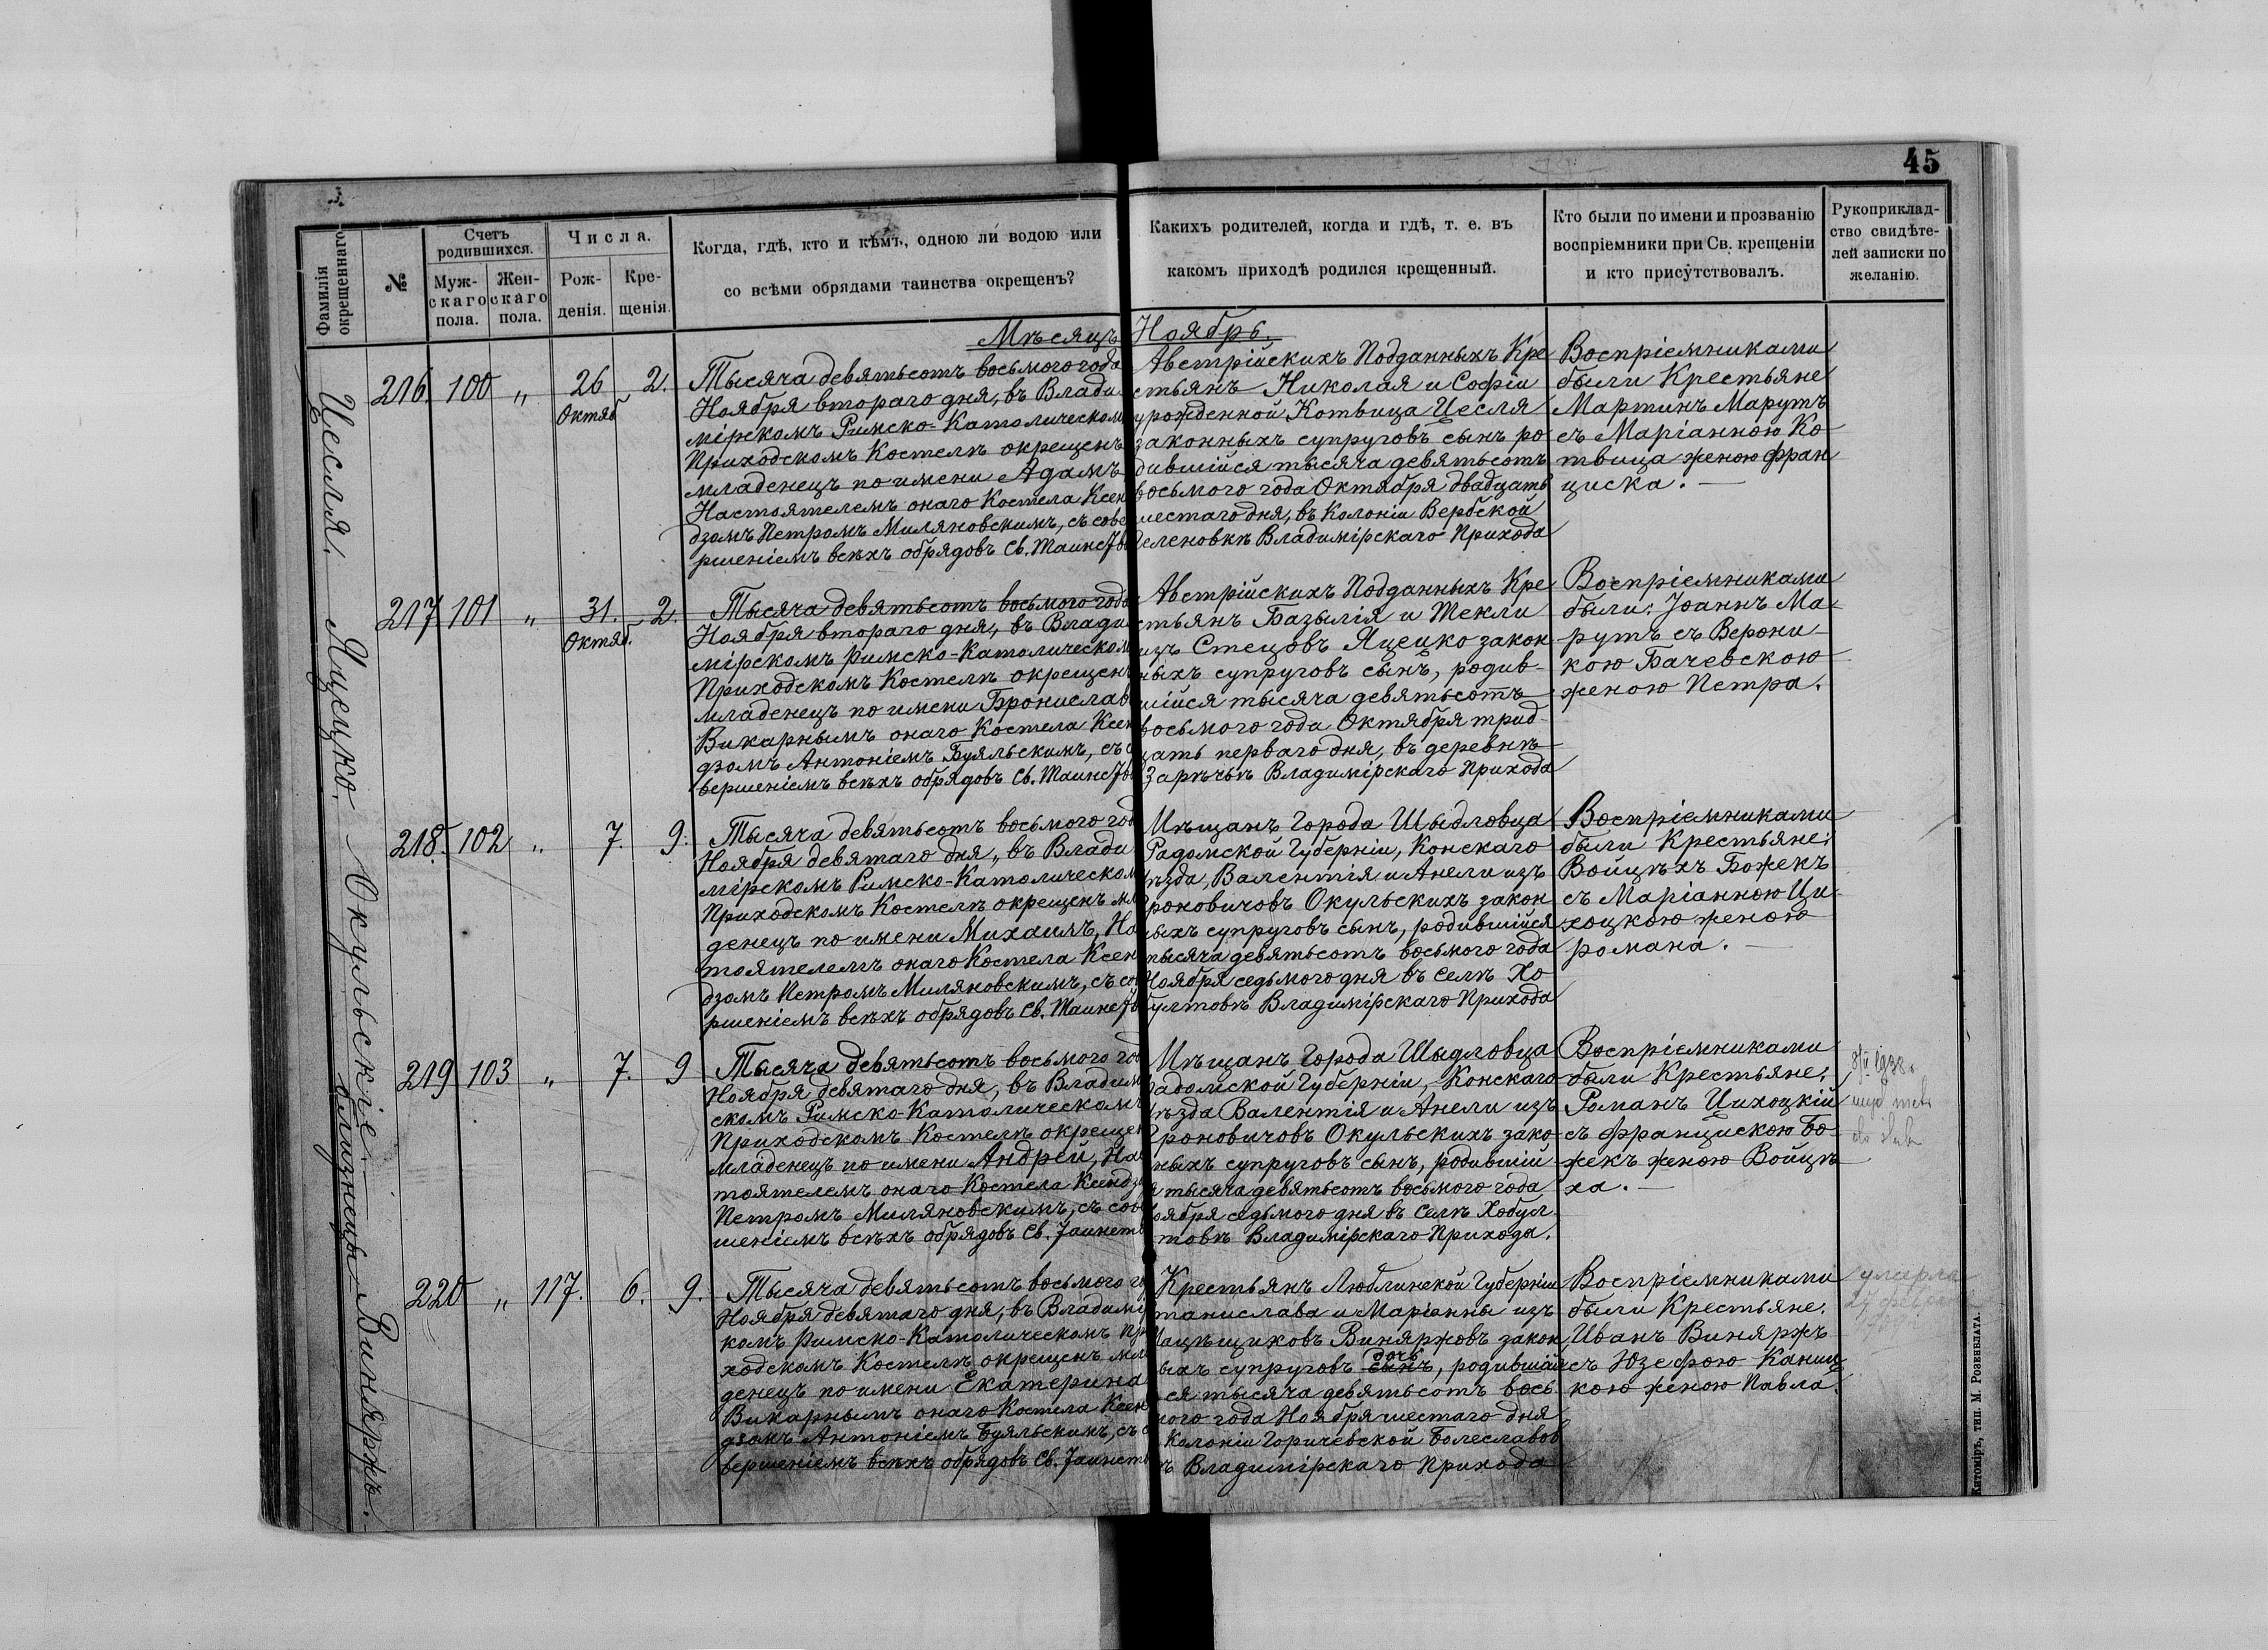 45
Фамилія окрещеннаго
№
Счетъ родившихся.
Муж-
скаго
пола.
Жен-
скаго
пола.
Числа.
Рож-
денія.
Кре-
щенія.
Когда, гдѣ, кто и кѣмъ, одною ли водою или
со всѣми обрядами таинства окрещенъ?
Какихъ родителей, когда и гдѣ, т. е. въ
какомъ приходѣ родился крещенный.
Кто были по имени и прозванію
воспріемники при Св. крещеніи
и кто присутствовалъ.
Рукоприклад-
ство свидѣте-
лей записки по
желанію.
Мѣсяцъ Ноябрь.
Цесля.
216. 100 „ 26 Октяб 2.
Тысяча девятьсотъ восьмого года
Ноября втораго дня, въ Влади
мірскомъ Римско-Католическом
Приходскомъ Костелѣ окрещенъ
младенецъ по имени Адамъ
Настоятелемъ онаго Костела Ксен
дзомъ Петромъ Миляновскимъ, съ сове
ршеніемъ всѣхъ обрядовъ Св. Таинст
Австрійскихъ Подданныхъ Кре
стьянъ Николая и Софіи
урожденной Котвица Цесля
законныхъ супруговъ сынъ ро
дившійся тысяча девятьсотъ
восьмого года Октября двадцать
шестаго дня, въ Колоніи Вербской
Селеновкѣ Владимірскаго Прихода
Воспріемниками
были Крестьяне
Мартинъ Марутъ
съ Маріанною Ко
твица женою Фран
циска. —
Яцецко.
217. 101 „ 31. Октяб. 2.
Тысяча девятьсотъ восьмого года
Ноября втораго дня, въ Влади
мірскомъ Римско-Католическом
Приходскомъ Костелѣ окрещен
младенецъ по имени Брониславъ
Викарнымъ онаго Костела Ксен
дзомъ Антоніемъ Буяльскимъ, съ с
вершеніемъ всѣхъ обрядовъ Св. Таинст
Австрійскихъ Подданныхъ Кре
стьянъ Базылія и Теклы
изъ Стецовъ Яцецко закон
ныхъ супруговъ сынъ, родив-
шійся тысяча девятьсотъ
восьмого года Октября трид-
цать перваго дня, въ деревнѣ
Зарѣчьѣ Владимірскаго Прихода
Воспріемниками
были: Іоаннъ Ма-
рутъ съ Верони-
кою Бачевскою
женою Петра.
Окульскіе
близнецы
218. 102 „ 7. 9.
Тысяча девятьсотъ восьмого год
Ноября девятаго дня, въ Влади
мірскомъ Римско-Католическом
Приходскомъ Костелѣ окрещенъ мл
денецъ по имени Михаилъ, На
тоятелемъ онаго Костела Ксен
дзомъ Петромъ Миляновскимъ, съ со
ршеніемъ всѣхъ обрядовъ Св. Таинст
Мѣщанъ Города Шыдловца
Радомской Губерніи, Конскаго
ѣзда, Валентія и Анели изъ
роновичовъ Окульскихъ закон
ныхъ супруговъ сынъ, родившійся
тысяча девятьсотъ восьмого года
Ноября седьмого дня въ селѣ Хо
бултовѣ Владимірскаго Прихода
Воспріемниками
были Крестьяне:
Войцѣхъ Божекъ
съ Маріанною Ци
хоцкою женою
Романа. —
219 103 „ 7. 9
Тысяча девятьсотъ восьмого год
Ноября девятаго дня, въ Владим
скомъ Римско-Католическомъ
Приходскомъ Костелѣ окрещен
младенецъ по имени Андрей, Нас
тоятелемъ онаго Костела Ксендз
Петромъ Миляновскимъ, съ сов
шеніемъ всѣхъ обрядовъ Св. Таинств
Мѣщанъ Города Шыдловца
Радомской Губерніи, Конскаго
ѣзда Валентія и Анели изъ
роновичовъ Окульскихъ зако-
ныхъ супруговъ сынъ, родившій
я тысяча девятьсотъ восьмого года
оября седьмого дня въ селѣ Хобул
товѣ Владимірскаго Прихода.
Воспріемниками
были Крестьяне:
Романъ Цихоцкій
съ Францискою Бо-
жекъ женою Войцѣ
ха. —
1938
Виняржъ.
220 „ 117. 6. 9.
Тысяча девятьсотъ восьмого го
Ноября девятаго дня, въ Владимі
комъ Римско-Католическомъ Пр
ходскомъ Костелѣ окрещенъ мла
денецъ по имени Екатерина
Викарнымъ онаго Костела Ксен
дзомъ Антоніемъ Буяльскимъ, съ с
вершеніемъ всѣхъ обрядовъ Св. Таинств
Крестьянъ Люблинской Губерніи
таниславa и Маріанны изъ
Мацѣщиковъ Виняржовъ закон
ыхъ супруговъ дочь, родившій
ся тысяча девятьсотъ вось
мого года Ноября шестаго дня
Колоніи Горичевской Болеславов
ѣ Владимірскаго Прихода
Воспріемниками
были Крестьяне:
Иванъ Виняржъ
съ Юзефою Каниц
кою женою Павла.
умерла
Житоміръ, тип. М. Розенблата.